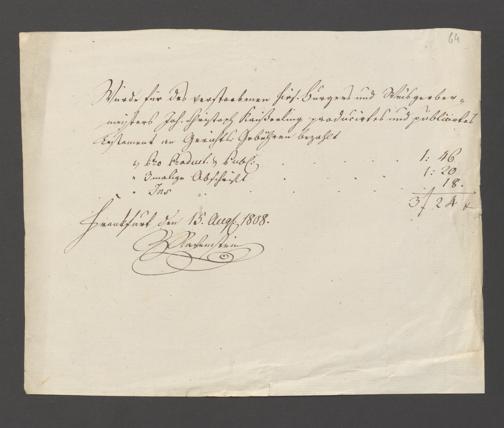 64
Wurde für des verstorbenen hies. Burgers und Weisgerber-
meisters Joh. Christoph producirtes und publicirtes
Testament an Gerichts Gebühren bezahlt
pro Product. & Publ. 1: 46
" 3malige Abschrift 1: 20
" Ins 18.
3 f 24 x
Frankfurt den 15. Augt 1808.